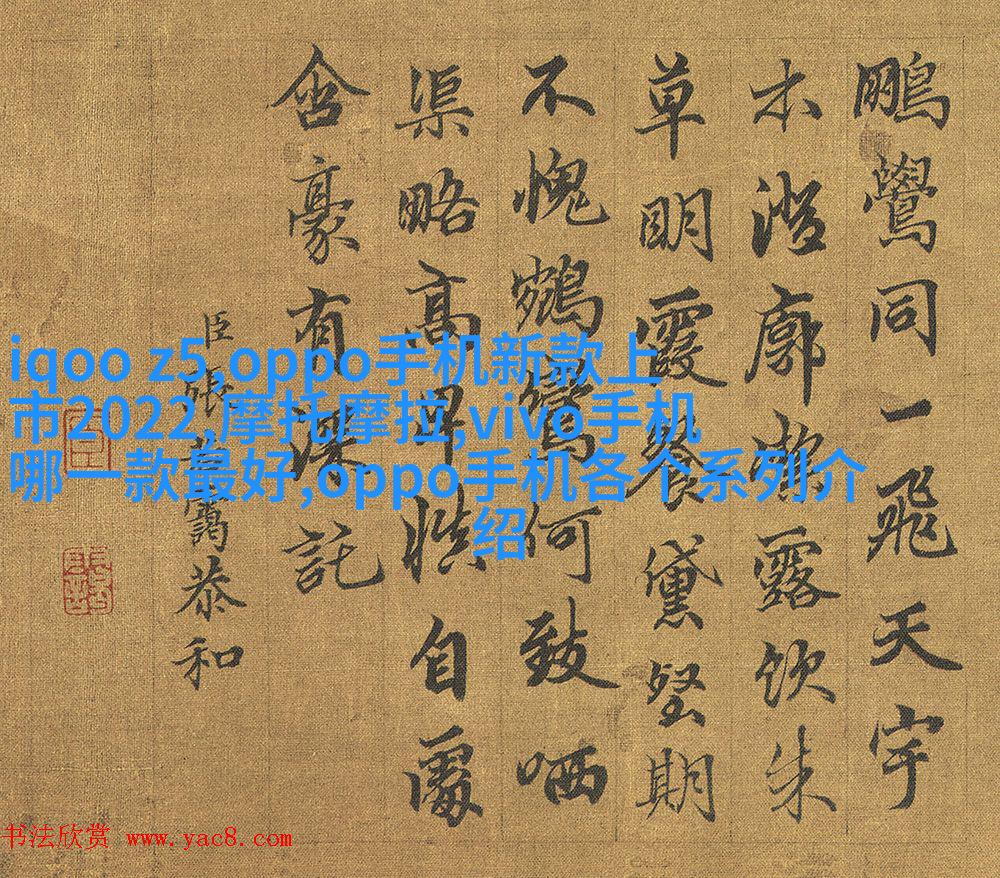 鵬鷽同一飛天宇
木澄廓潔露飲朱
草明霞餐黛壑期
不愧鵷鸞何致哂
渠略高卑自處
含豪有深託
臣張若靄恭和
iqoo z5,oppo手机新款上
市2022,摩托摩拉,vivo手机
哪一款最好,oppo手机各个系列介
绍
书法欣赏 www.yac8.com